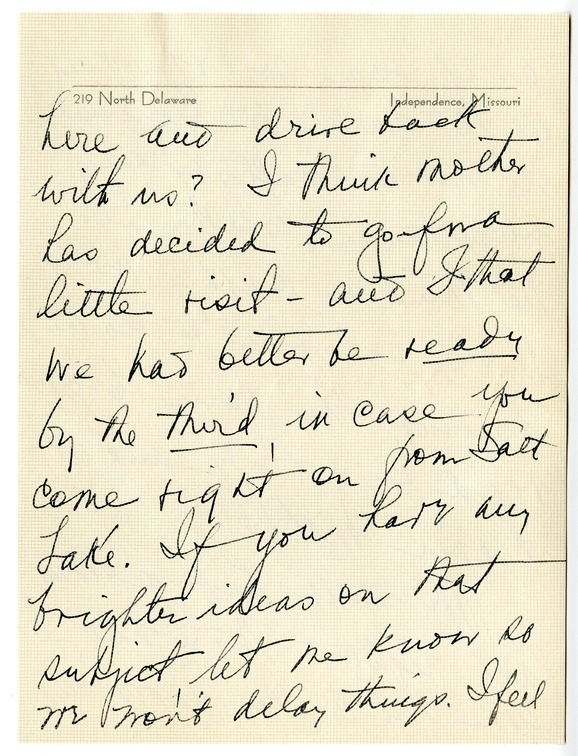 219 North Delaware Independence, Missouri
here and drive back
with us? I think mother
has decided to go for a
little visit - and I that
we had better be ready
by the third, in case you
come right on from Salt
Lake. If you have any
brighter ideas on that
subject let me know so
we won't delay things. I feel